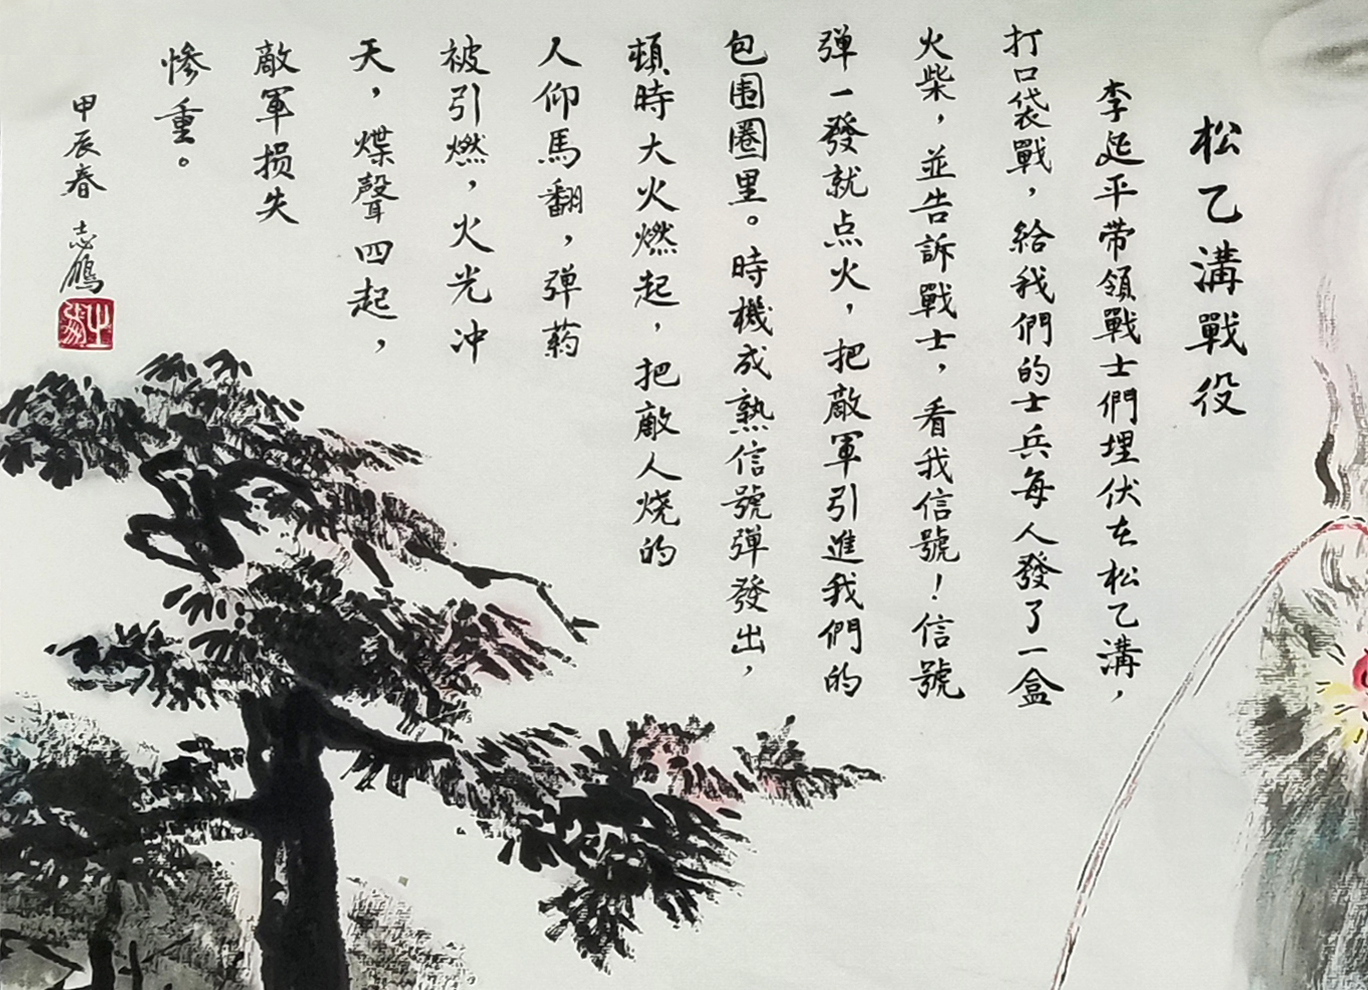 松乙溝戰役
李延平带領戰士們埋伏在松乙溝，
打口袋戰，給我們的士兵每人發了一盒
火柴，並告訴戰士，看我信號！信號
弹一發就点火，把敵軍引進我們的
包围圈里。時機成熟信號彈發出，
頓時大火燃起，把敵人烧的
人仰馬翻，弹药
被引燃，火光冲
天，爆聲四起，
敵軍损失
惨重。
甲辰春 志鵬